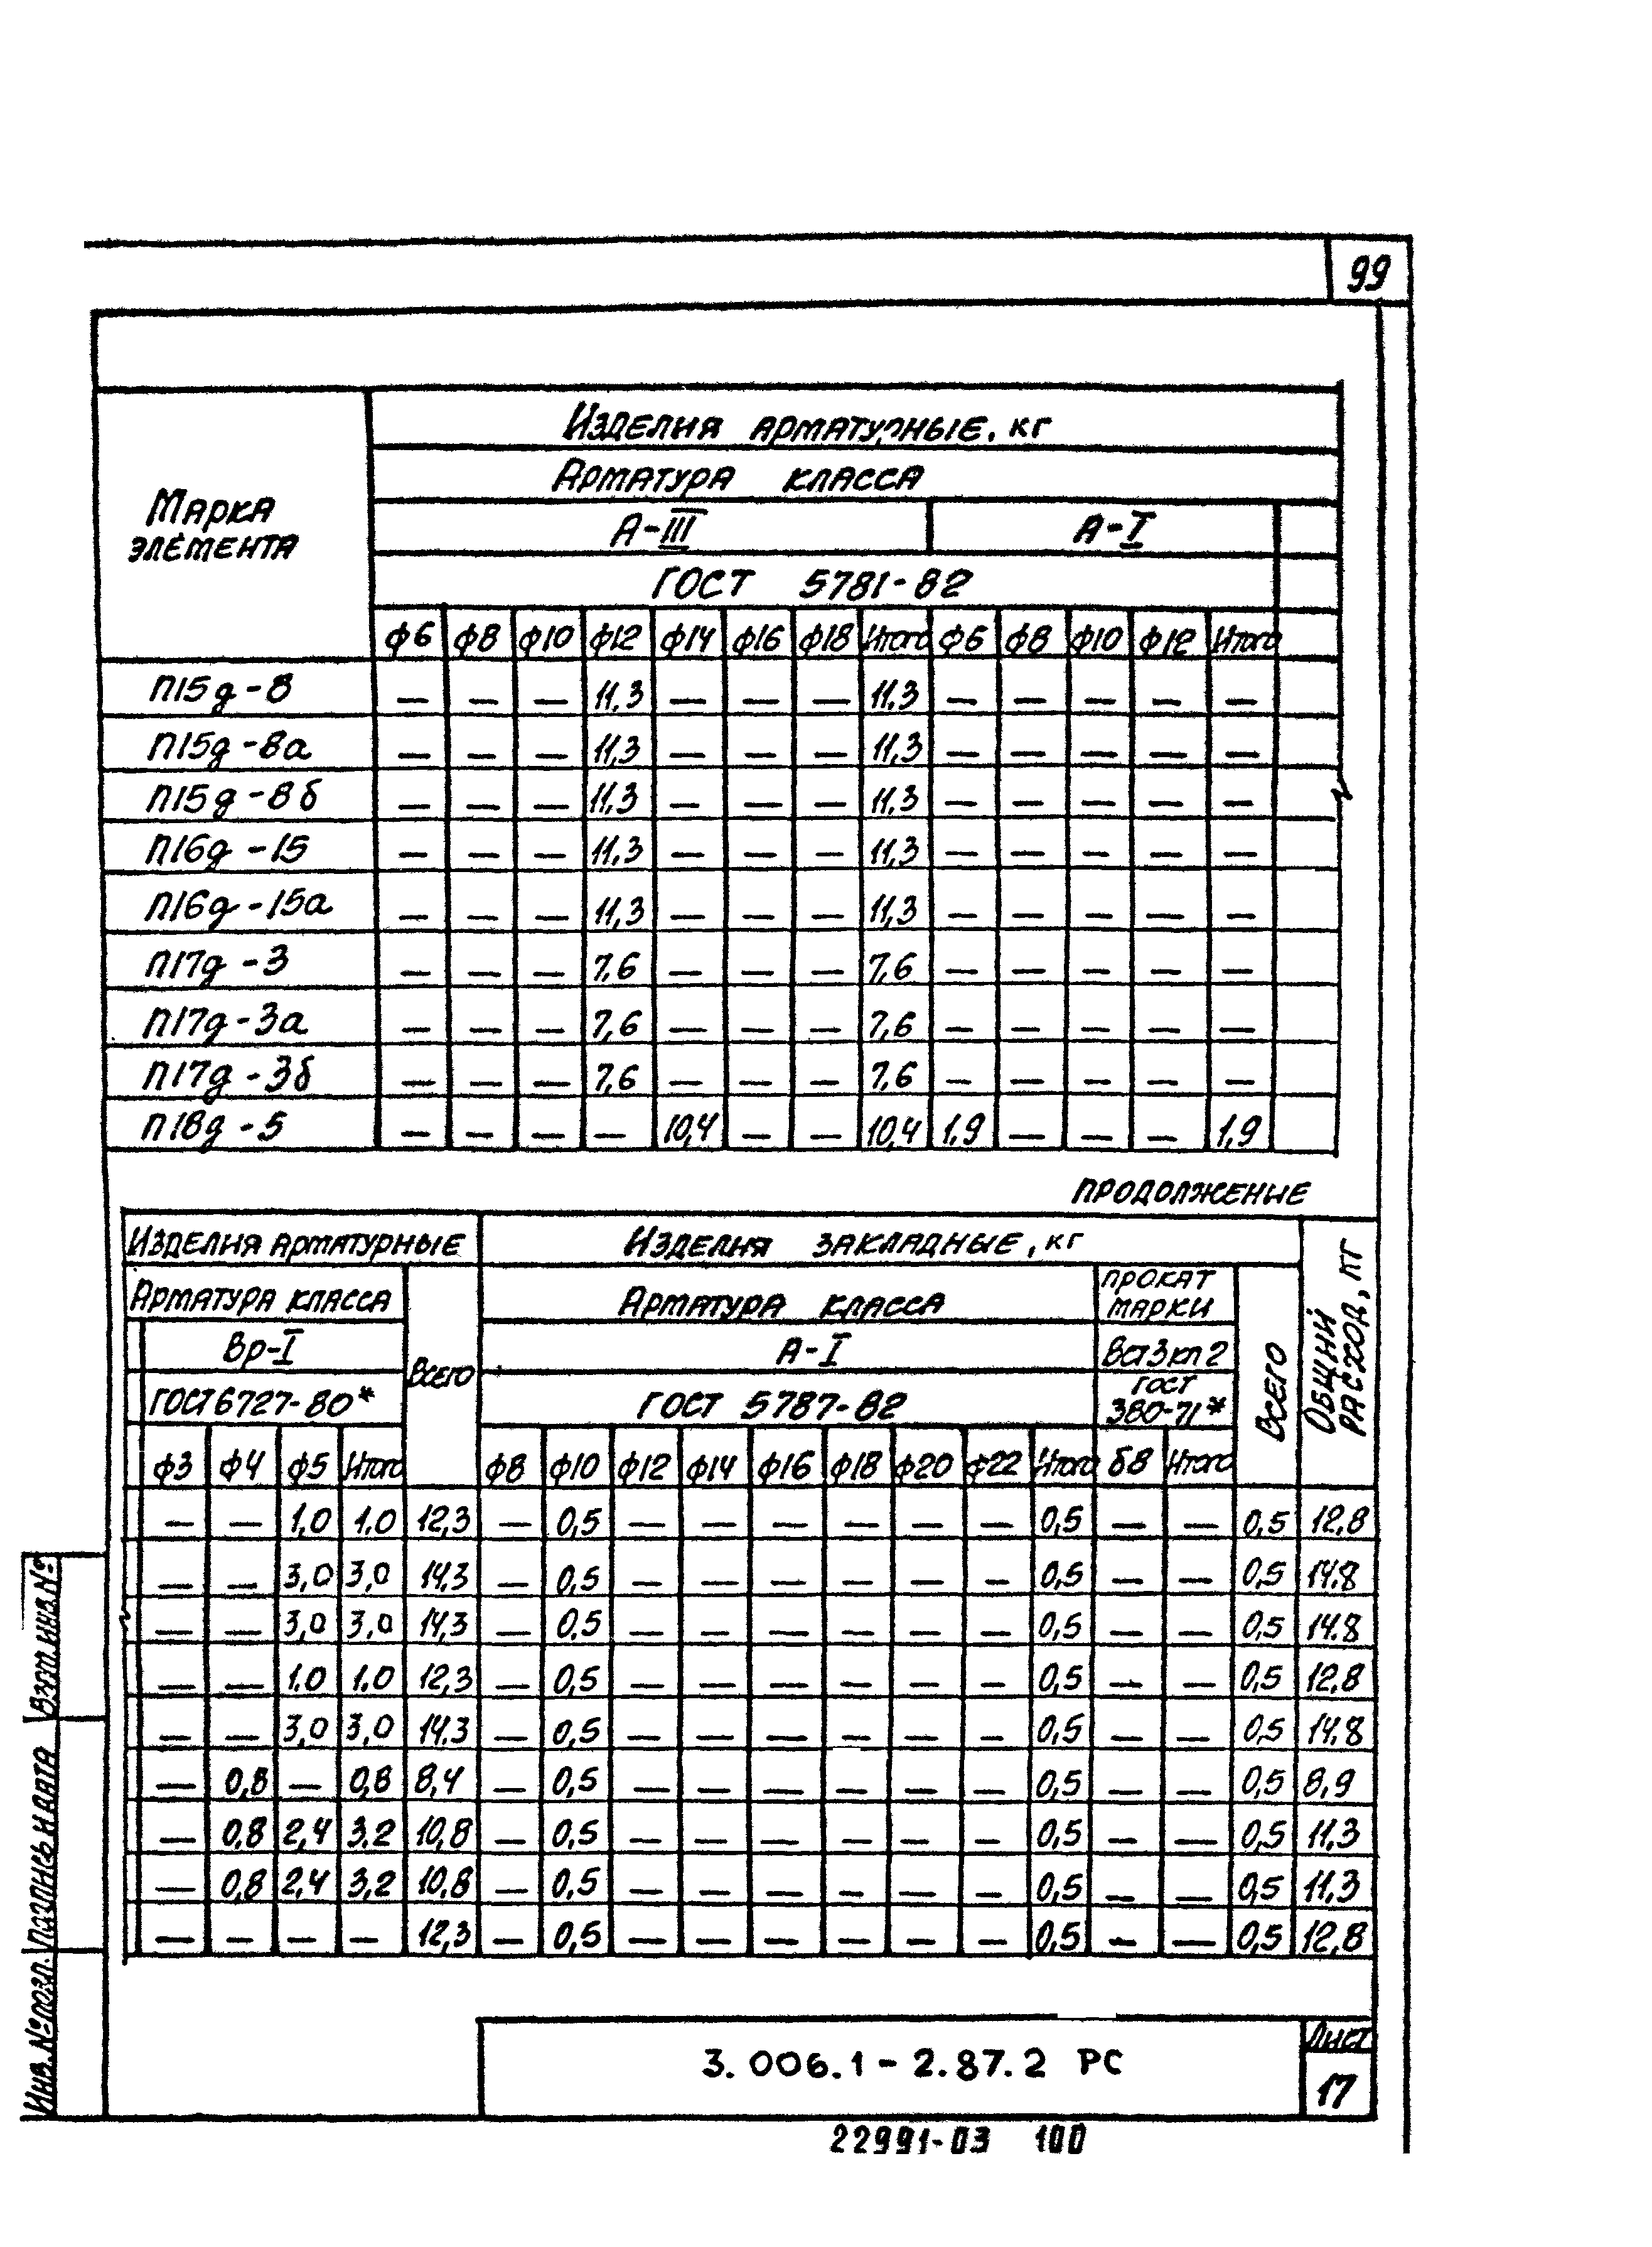 99
Изделия арматурные, кг
Арматура класса
Марка
элемента
А-III А-I
ГОСТ 5781-82
ф6 ф8 ф10 ф12 ф14 ф16 ф18 Итого ф6 ф8 ф10 ф12 Итого
П15д-8 — — — 11,3 — — — 11,3 — — — — —
П15д-8а — — — 11,3 — — — 11,3 — — — — —
П15д-8б — — — 11,3 — — — 11,3 — — — — —
П16д-15 — — — 11,3 — — — 11,3 — — — — —
П16д-15а — — — 11,3 — — — 11,3 — — — — —
П17д-3 — — — 7,6 — — — 7,6 — — — — —
П17д-3а — — — 7,6 — — — 7,6 — — — — —
П17д-3б — — — 7,6 — — — 7,6 — — — — —
П18д-5 — — — — 10,4 — — 10,4 1,9 — — — 1,9
продолжение
Изделия арматурные Изделия закладные, кг Общий расход, кг
Арматура класса Всего Арматура класса прокат марки Всего
Вр-I А-I Вст3кп2
ГОСТ 6727-80* ГОСТ 5787-82 ГОСТ 380-71*
ф3 ф4 ф5 Итого ф8 ф10 ф12 ф14 ф16 ф18 ф20 ф22 Итого б8 Итого
— — 1,0 1,0 12,3 — 0,5 — — — — — — 0,5 — — 0,5 12,8
— — 3,0 3,0 14,3 — 0,5 — — — — — — 0,5 — — 0,5 14,8
— — 3,0 3,0 14,3 — 0,5 — — — — — — 0,5 — — 0,5 14,8
— — 1,0 1,0 12,3 — 0,5 — — — — — — 0,5 — — 0,5 12,8
— — 3,0 3,0 14,3 — 0,5 — — — — — — 0,5 — — 0,5 14,8
— 0,8 — 0,8 8,4 — 0,5 — — — — — — 0,5 — — 0,5 8,9
— 0,8 2,4 3,2 10,8 — 0,5 — — — — — — 0,5 — — 0,5 11,3
— 0,8 2,4 3,2 10,8 — 0,5 — — — — — — 0,5 — — 0,5 11,3
— — — — 12,3 — 0,5 — — — — — — 0,5 — — 0,5 12,8
Взат.инв.№
Патлись и дата
Инв.№погл.
3.006.1-2.87.2 РС
Лист
17
22991-03 100